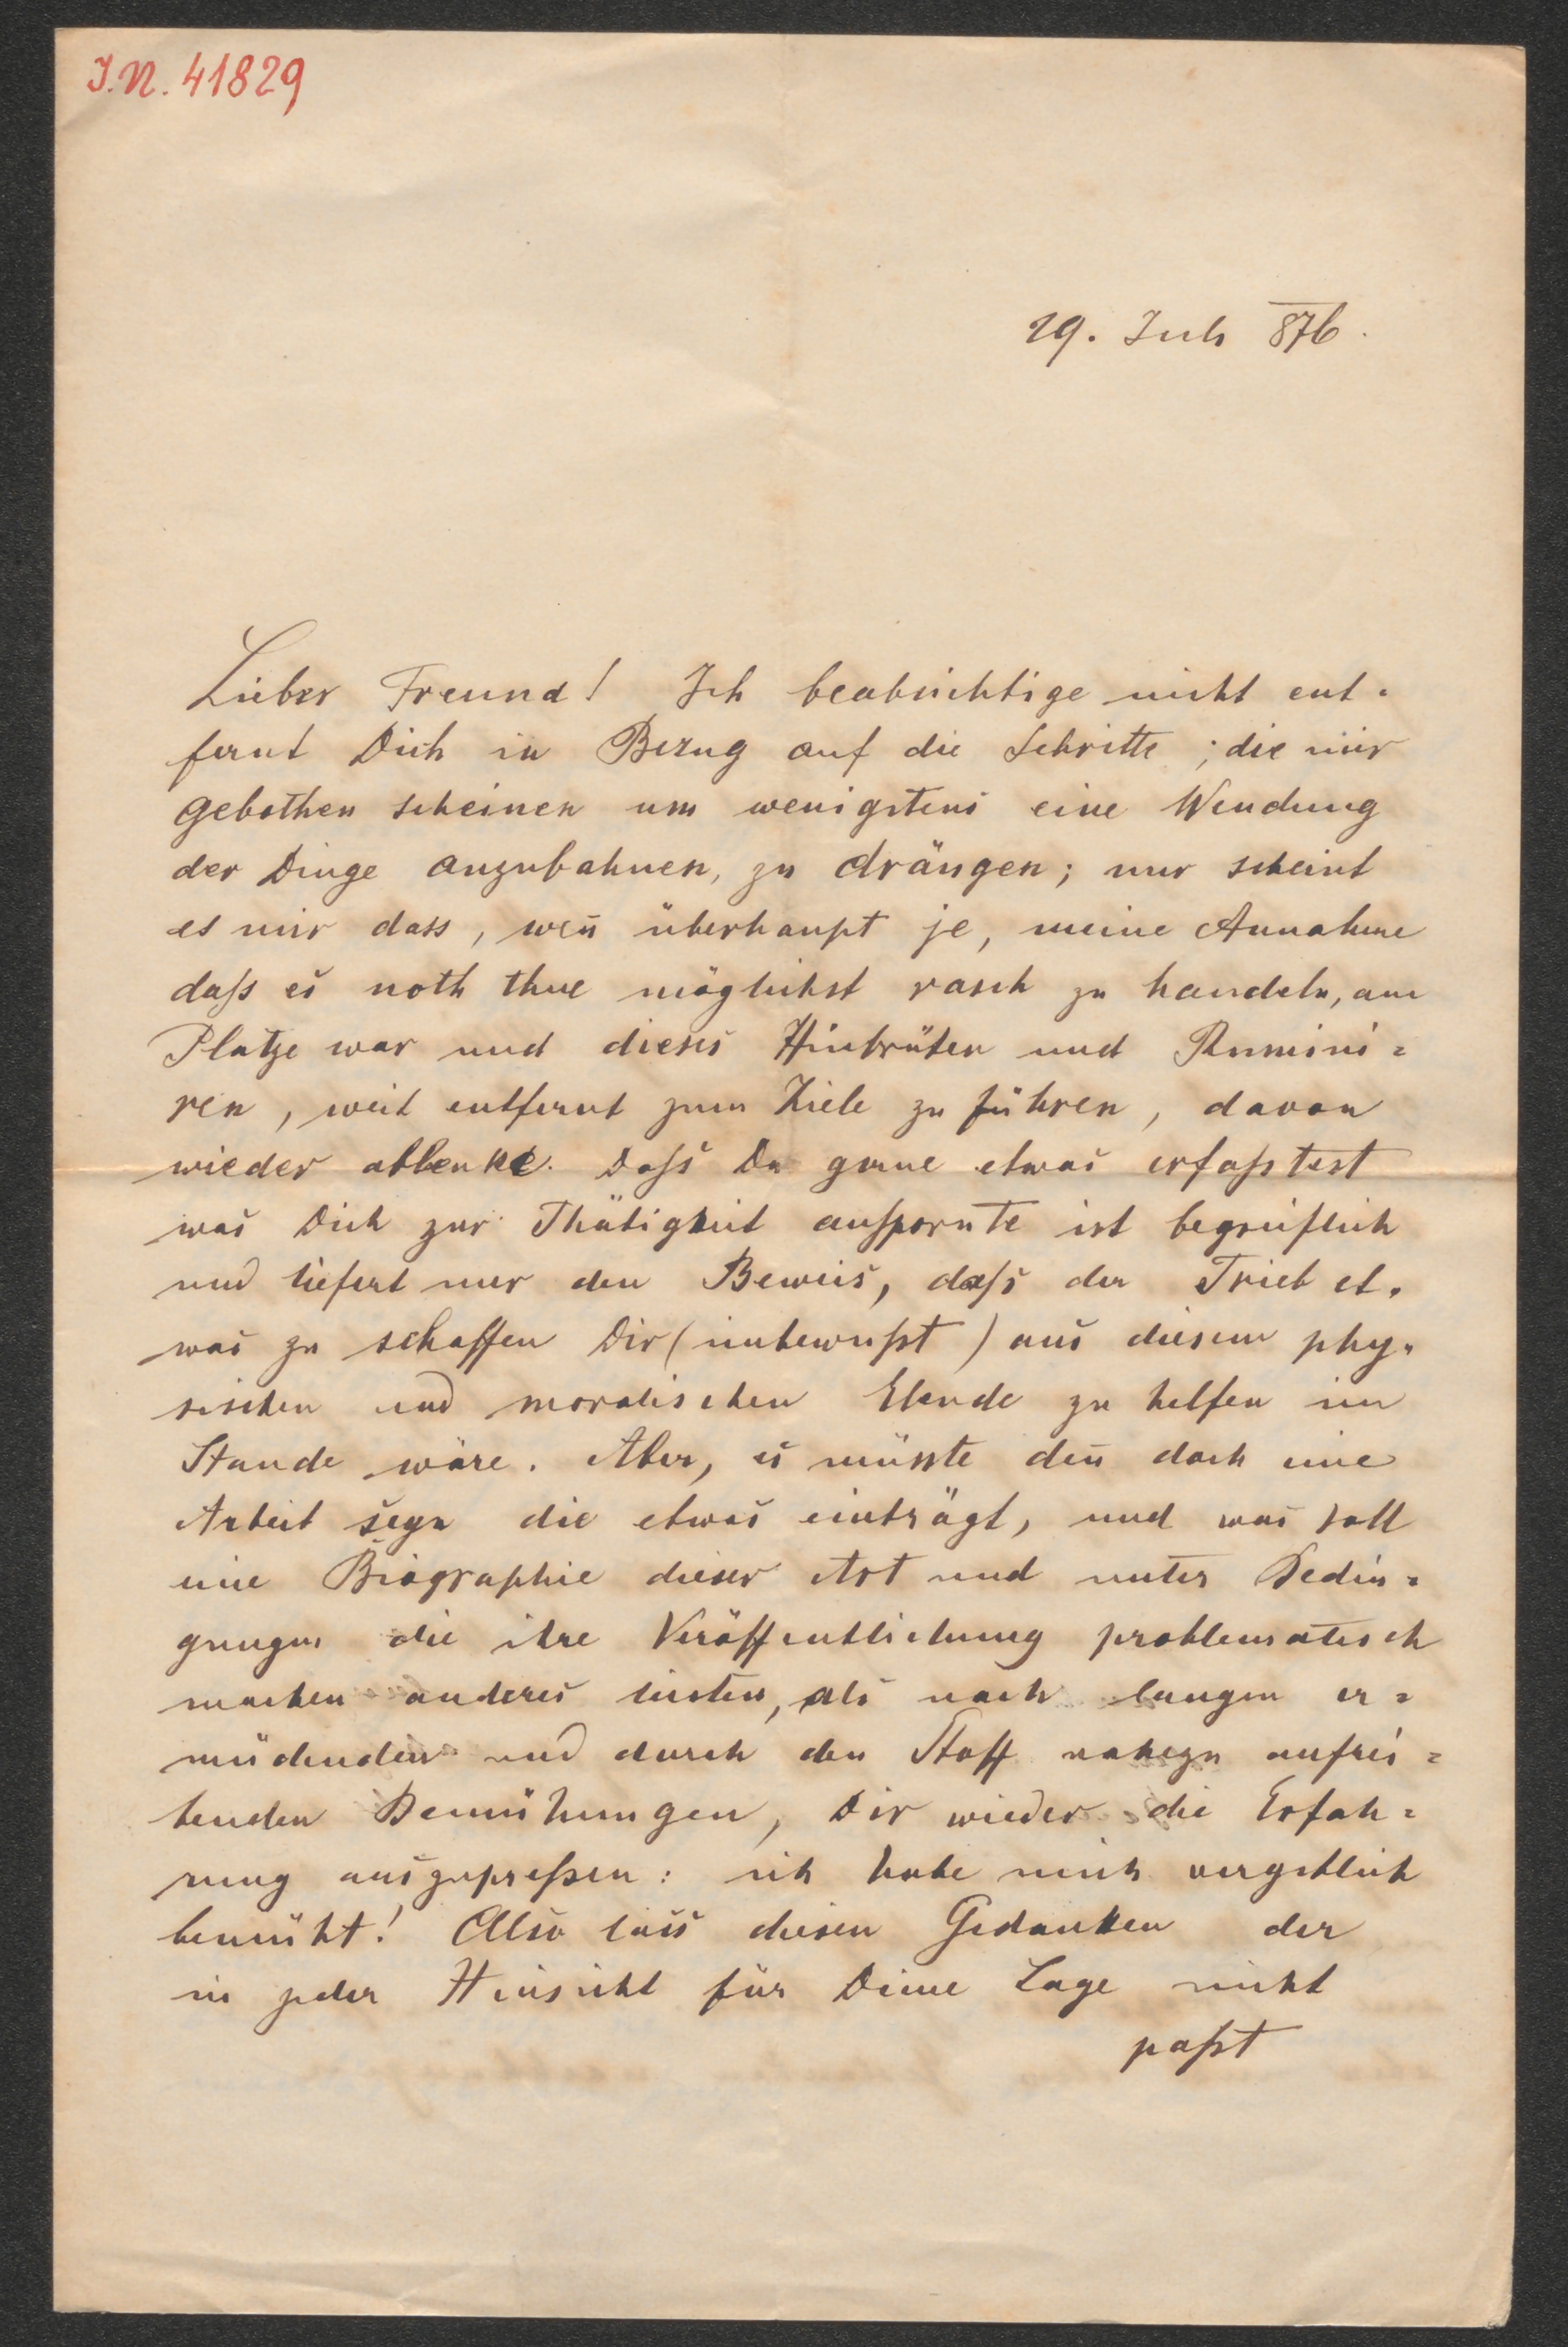 I.N. 41829
29. Juli 876.
Lieber Freund! Ich beabsichtige nicht ent-
fernt Dich in Bezug auf die Schritte, die mir
gebothen scheinen um wenigstens eine Wendung
der Dinge anzubahnen, zu drängen; nur scheint
es mir dass, wen̄ überhaupt je, meine Annahme
daſs es noth thue möglichst rasch zu handeln, am
Platze war und dieses Hinbrüten und Rumini=
ren, weit entfernt zum Ziele zu führen, davon
wieder ablenke. Daſs Du gerne etwas erfaſstest
was Dich zur Thätigkeit anspornte ist begreiflich
und liefert nur den Beweis, daſs der Trieb et-
was zu schaffen Dir (unbewuſst) aus diesem phy-
sischen und moralischen Elende zu helfen im
Stande wäre. Aber, es müsste den̄ doch eine
Arbeit seyn die etwas einträgt, und was soll
eine Biographie dieser Art und unter Bedin=
gungen die ihre Veröffentlichung problematisch
machen anderes leisten, als nach langen er=
müdenden und durch den Stoff nahezu aufrei=
benden Bemühungen, Dir wieder die Erfah=
rung auszupreſsen: ich habe mich vergeblich
bemüht! Also lass diesen Gedanken der
in jeder Hinsicht für Deine Lage nicht
paſst